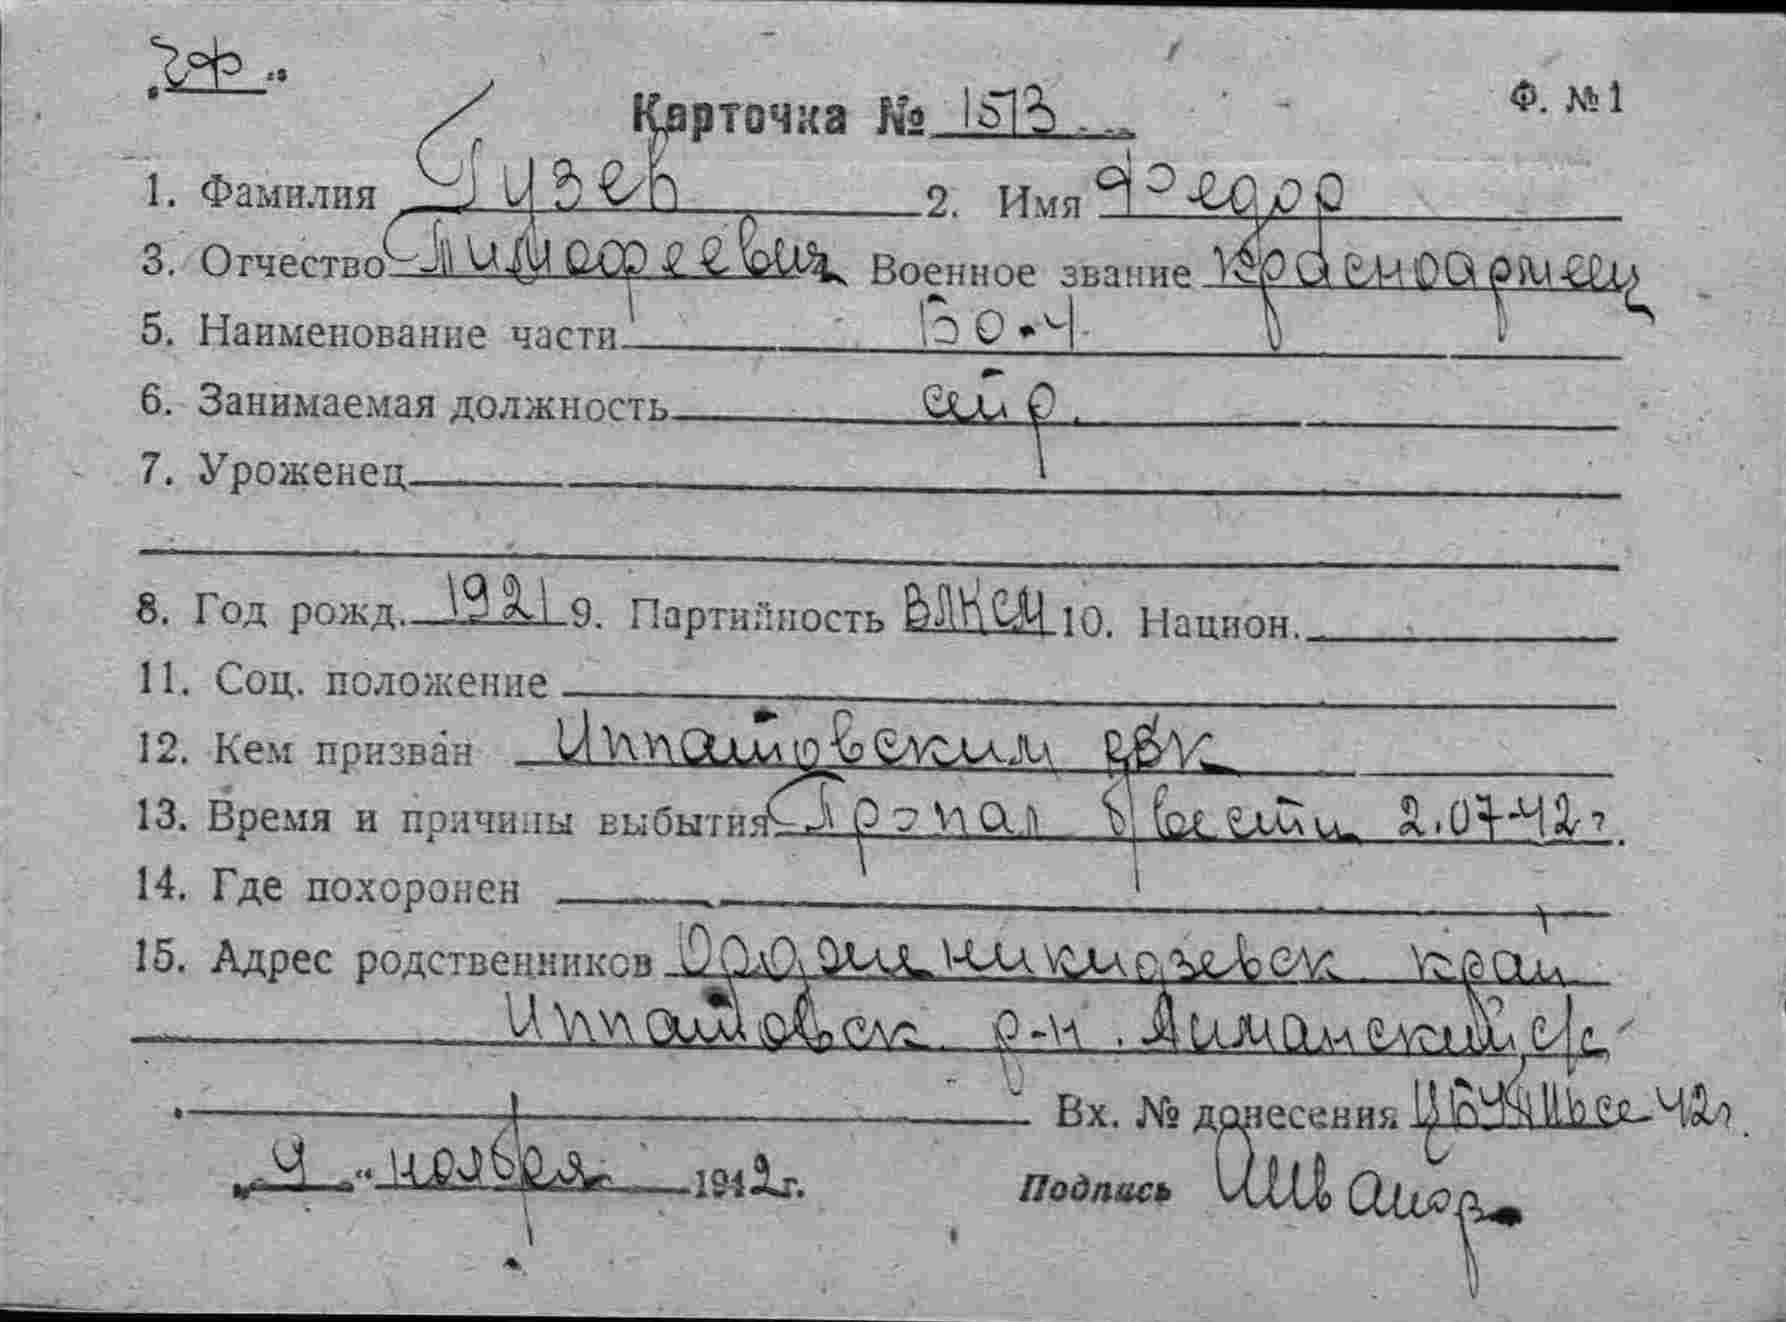 Ф. №1
Карточка № 1573
1. Фамилия Гузев 2. Имя Федор
3. Отчество Тимофеевич Военное звание красноармеец
5. Наименование части 60.4
6. Занимаемая должность стр.
7. Уроженец
8. Год рожд. 1921 9. Партийность ВЛКСМ 10. Национ.
11. Соц. положение
12. Кем призван Иппатовским рвк
13. Время и причины выбытия Пропал б/вести 2.07-42г.
14. Где похоронен
15. Адрес родственников Орджоникидзевск край
Иппатовск р-н. Лиманский с/с
Вх. № донесения 42г.
„4“ ноября 1942г. Подпись